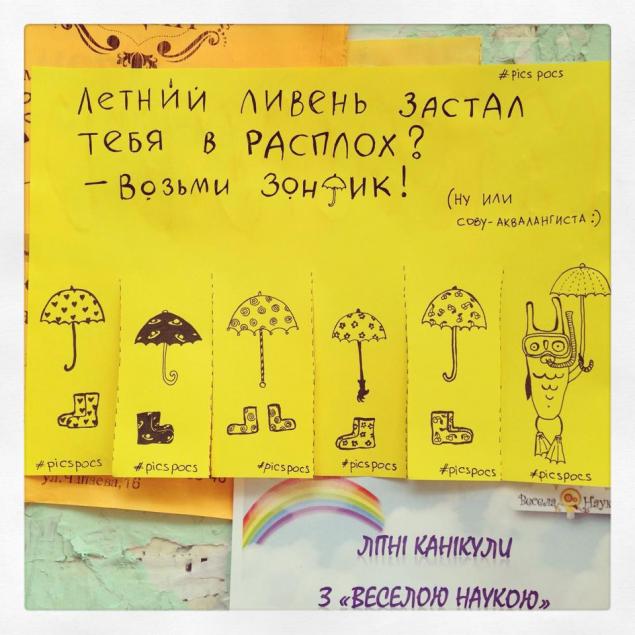 #pics pocs
ЛЕТНИЙ ЛИВЕНЬ ЗАСТАЛ
ТЕБЯ В РАСПЛОХ?
– ВОЗЬМИ ЗОНТИК!
(НУ ИЛИ
СОВУ-АКВАЛАНГИСТА:)
#picspocs
#picspocs
#picspocs
#picspocs
#picspocs
#picspocs
ул.Чапаева,16
Весела Наук
ЛІТНІ КАНІКУЛИ
З «ВЕСЕЛОЮ НАУКОЮ»